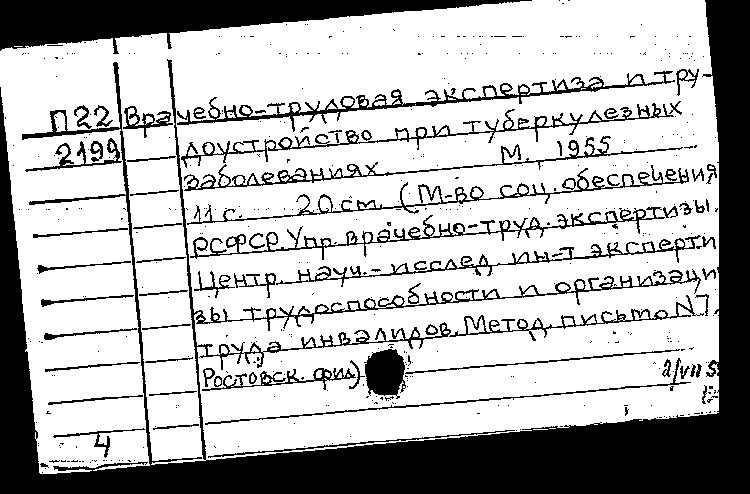 П22 Врачебно-трудовая экспертиза и тру-
2199 доустройство при туберкулезных
заболеваниях. М., 1955
11 с. 20 см. (М-во соц. обеспечения
РСФСР. Упр. врачебно-труд. экспертизы.
Центр. науч.-исслед. ин-т эксперти
зы трудоспособности и организаци
труда инвалидов. Метод. письмо N7.
Ростовск. фил)
2/VII 5
4